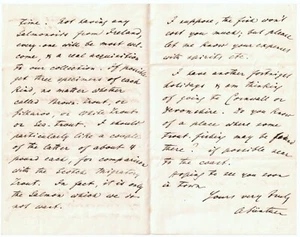 time. Not having any
Salmonoids from Ireland,
every one will be most wel-
come, & a real acquisition
to our collection. If possible
get three specimens of each
kind, no matter whether
called Brown trout, or
or white trout
or Sea trout. I should
particularly like a couple
of the latter of about 4
pound each, for comparison
with the Scotch Migratory
Trout. In fact, it is only
the Salmon which we do
not want.
I suppose, the fish won't
cost you much; but please
let me know your expenses
with spirits etc.
I have another fortnight
holidays & am thinking
of going to Cornwall or
Devonshire. Do you know
of a place where some
trout-fishing may be
there? if possible near
to the coast.
Hoping to see you soon
in town
Yours very truly
A Günther